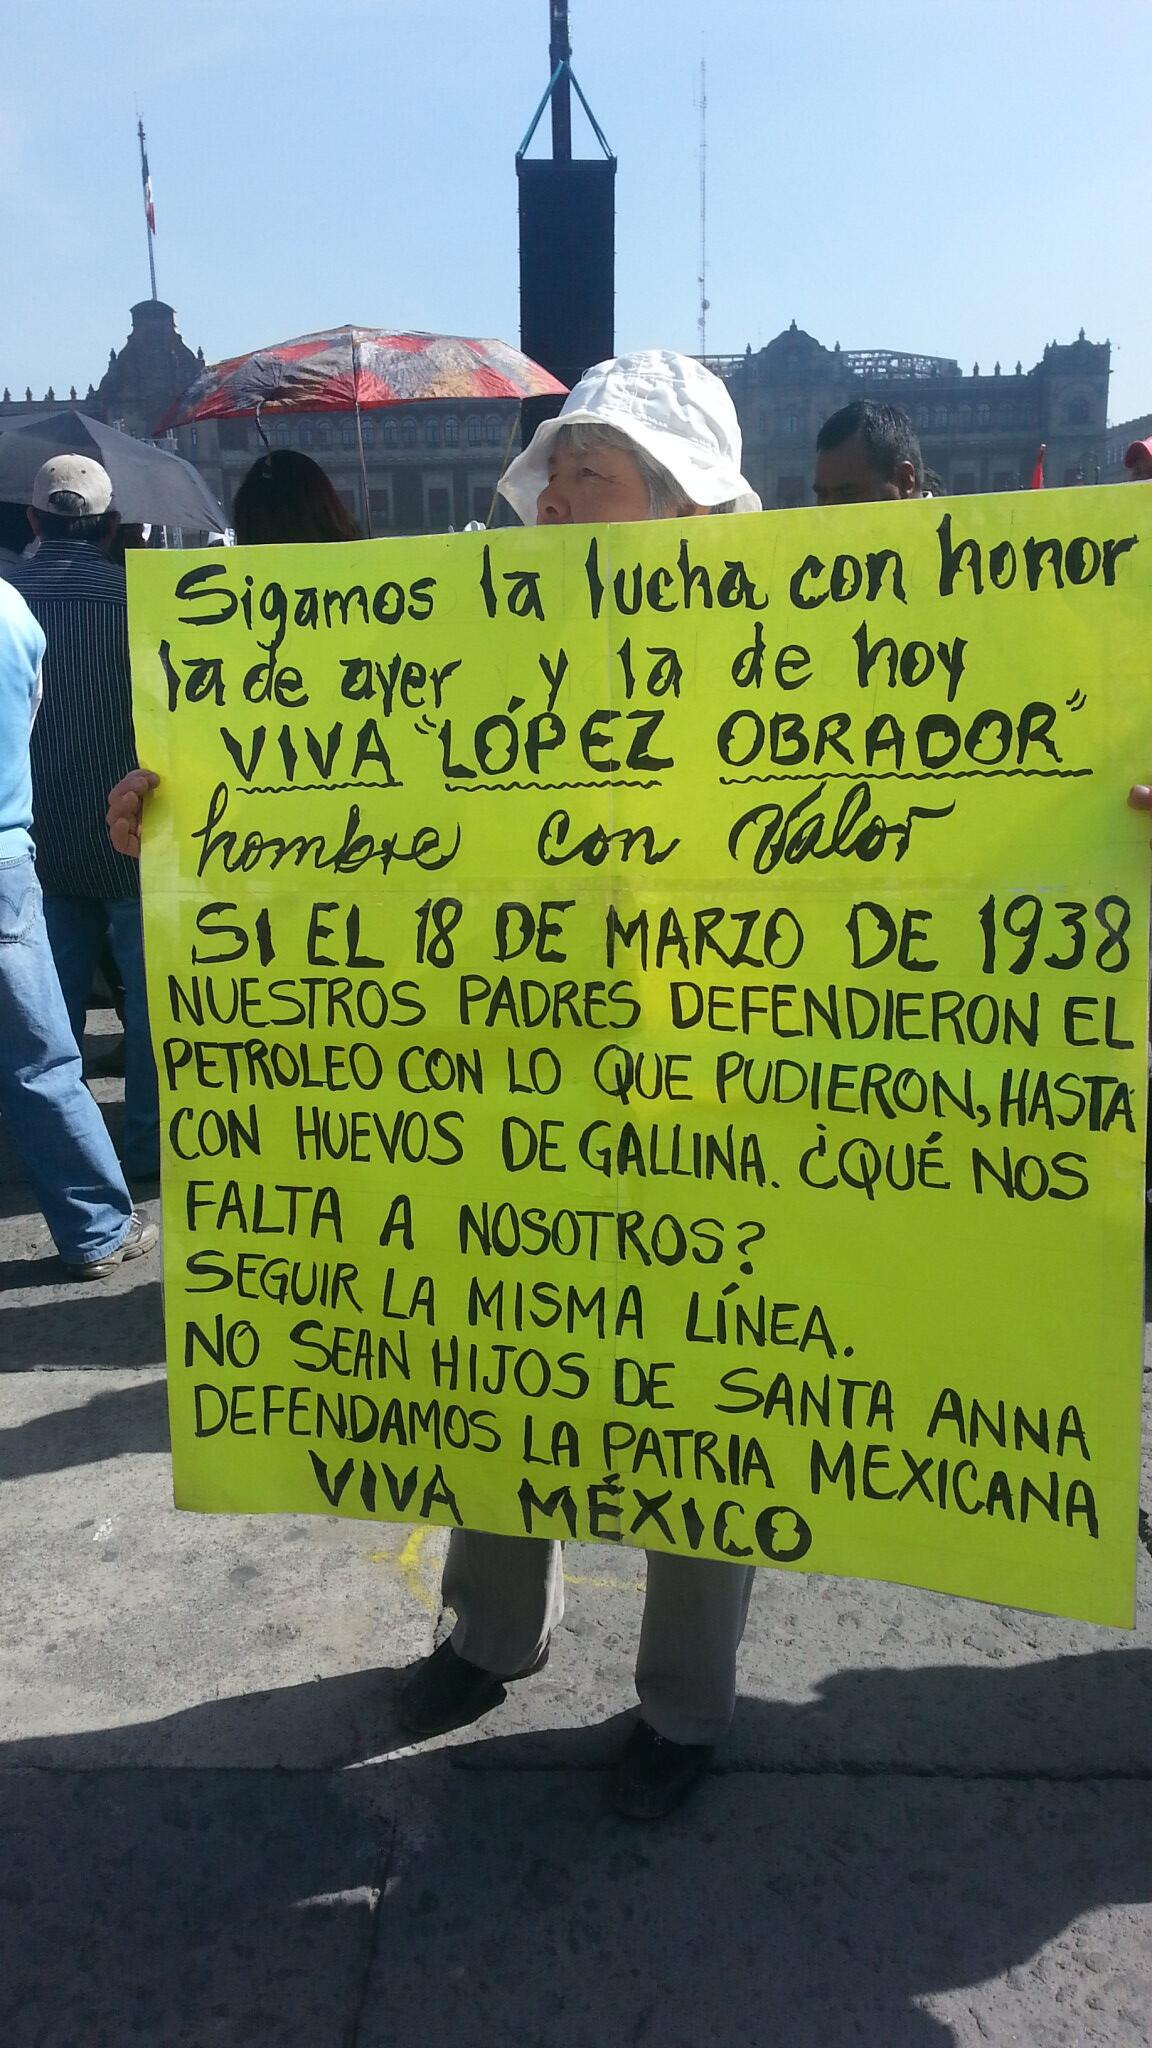 Sigamos la lucha con honor
la de ayer y la de hoy
VIVA "LÓPEZ OBRADOR"
hombre con Valor
SI EL 18 DE MARZO DE 1938
NUESTROS PADRES DEFENDIERON EL
PETROLEO CON LO QUE PUDIERON, HASTA
CON HUEVOS DE GALLINA. ¿QUÉ NOS
FALTA A NOSOTROS?
SEGUIR LA MISMA LÍNEA.
NO SEAN HIJOS DE SANTA ANNA
DEFENDAMOS LA PATRIA MEXICANA
VIVA MÉXICO